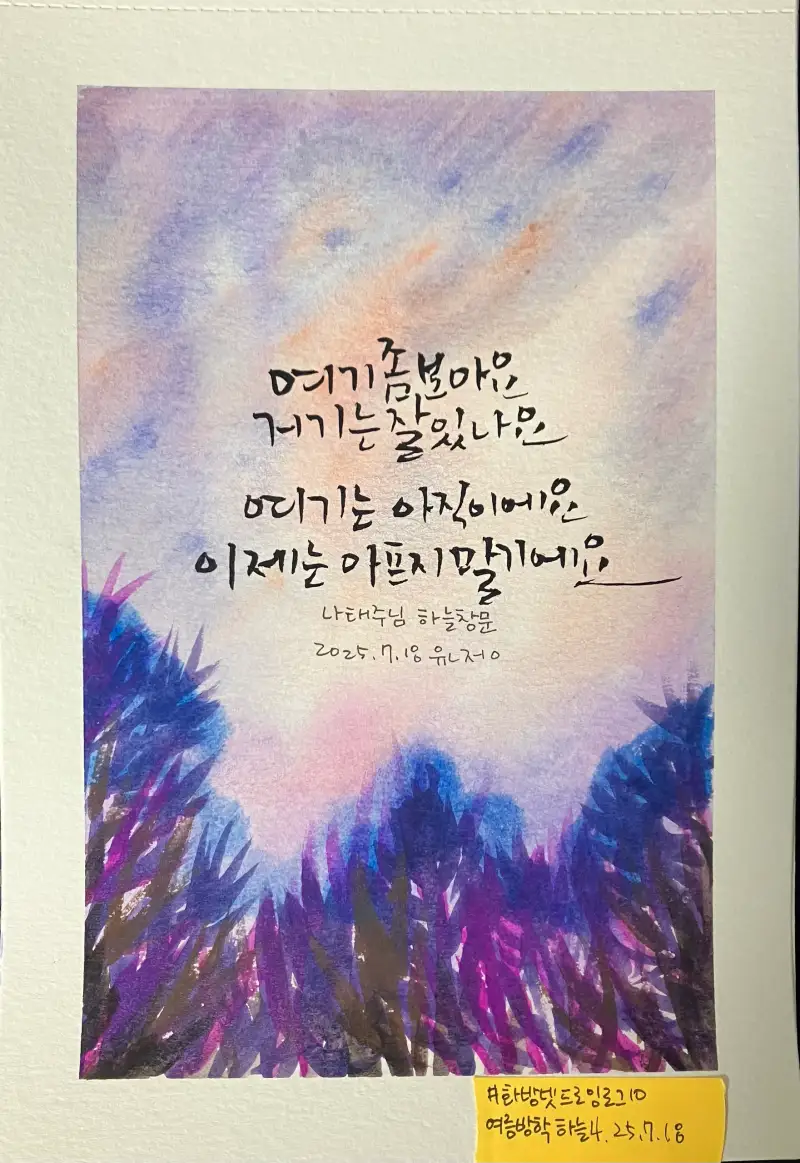 여기 좀 보아요
거기는 잘 있나요
여기는 아직이에요
이제는 아프지 말기에요
나태주님 하늘창문
2025.7.18 유니저이
#화방넷드로잉로그10
여름방학 하늘4. 25.7.18